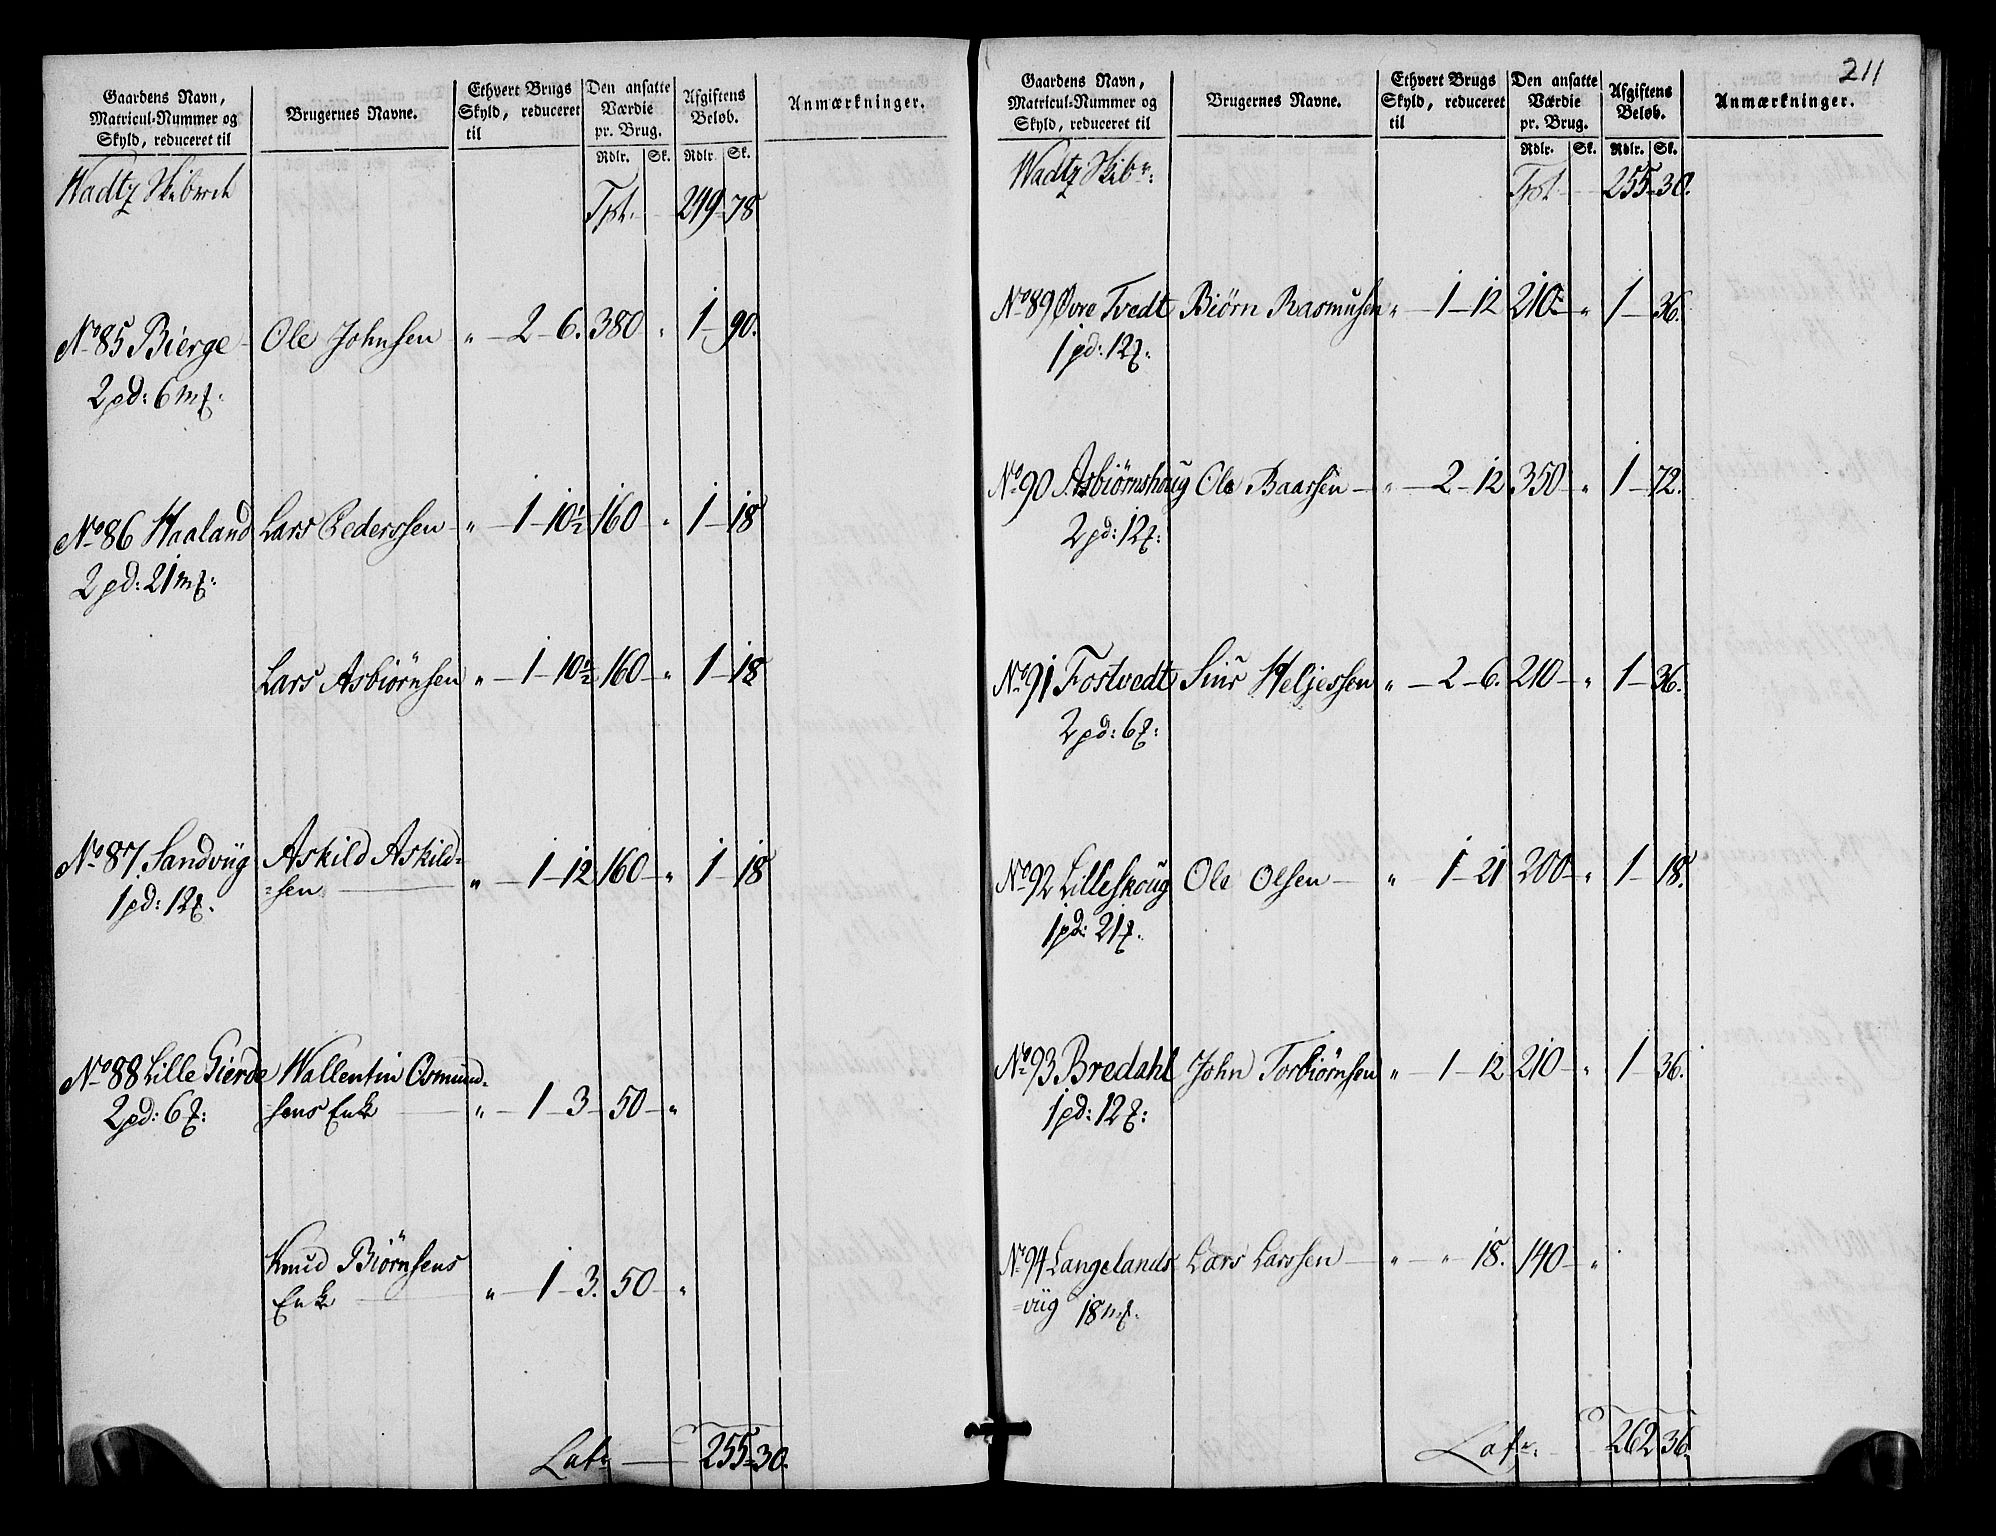 Gaardens Navn, Matricul-Nummer og Skyld, reduceret til
Brugernes Navne.
Ethvert Brugs Skyld, reduceret til
Den ansatte Værdie pr. Brug.
Afgiftens Beløb.
Anmærkninger.
Rdlr. Sk. Rdlr. Sk.
Wadtz Skibred
Tpt. 249 78
No 85 Bierge Ole Johnsen " 2 6. 380 " 1 90.
2 pd: 6 m
No 86 Haaland Lars Pederssen " 1 10½ 160 " 1 18
2 pd: 21 m
Lars Asbiörnsen " 1 10½ 160 " 1 18
No 87 Sandviig Askild Askild=
1 pd: 12 =sen " 1 12 160 " 1 18
No 88 Lille Gierde Wallentin Osmund=
2 pd: 6 sens Enke " 1 3 50 "
Knud Biörnsens
Enke " 1 3. 50 "
Latr 255 30.
211
Gaardens Navn, Matricul-Nummer og Skyld, reduceret til
Brugernes Navne.
Ethvert Brugs Skyld, reduceret til
Den ansatte Værdie pr. Brug.
Afgiftens Beløb.
Anmærkninger.
Rdlr. Sk. Rdlr. Sk.
Wadtz Skibr:
Tpt. 255 30.
No 89 Øvre Tvedt Biörn Rasmusen " 1 12 210 " 1 36.
1 pd: 12
No 90 Asbiörnshoug Ole Baarsen " 2 12 350 " 1 72.
2 pd: 12
No 91 Fostvedt Siur Heljessen " 2 6. 210 " 1 36.
2 pd: 6
No 92 Lilleskoug Ole Olsen " 1 21 200 " 1 18.
1 pd: 21
No 93 Bredahl John Torbiörnsen " 1 12 210 " 1 36.
1 pd: 12
No 94 Langelands= Lars Larssen " " 18. 140 "
=viig 18 m
Latr: 262 36.